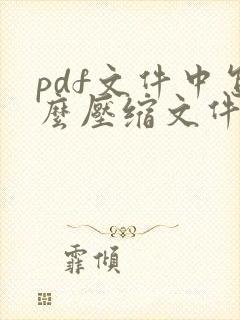 pdf文件中怎
麼壓缩文件
霏傾